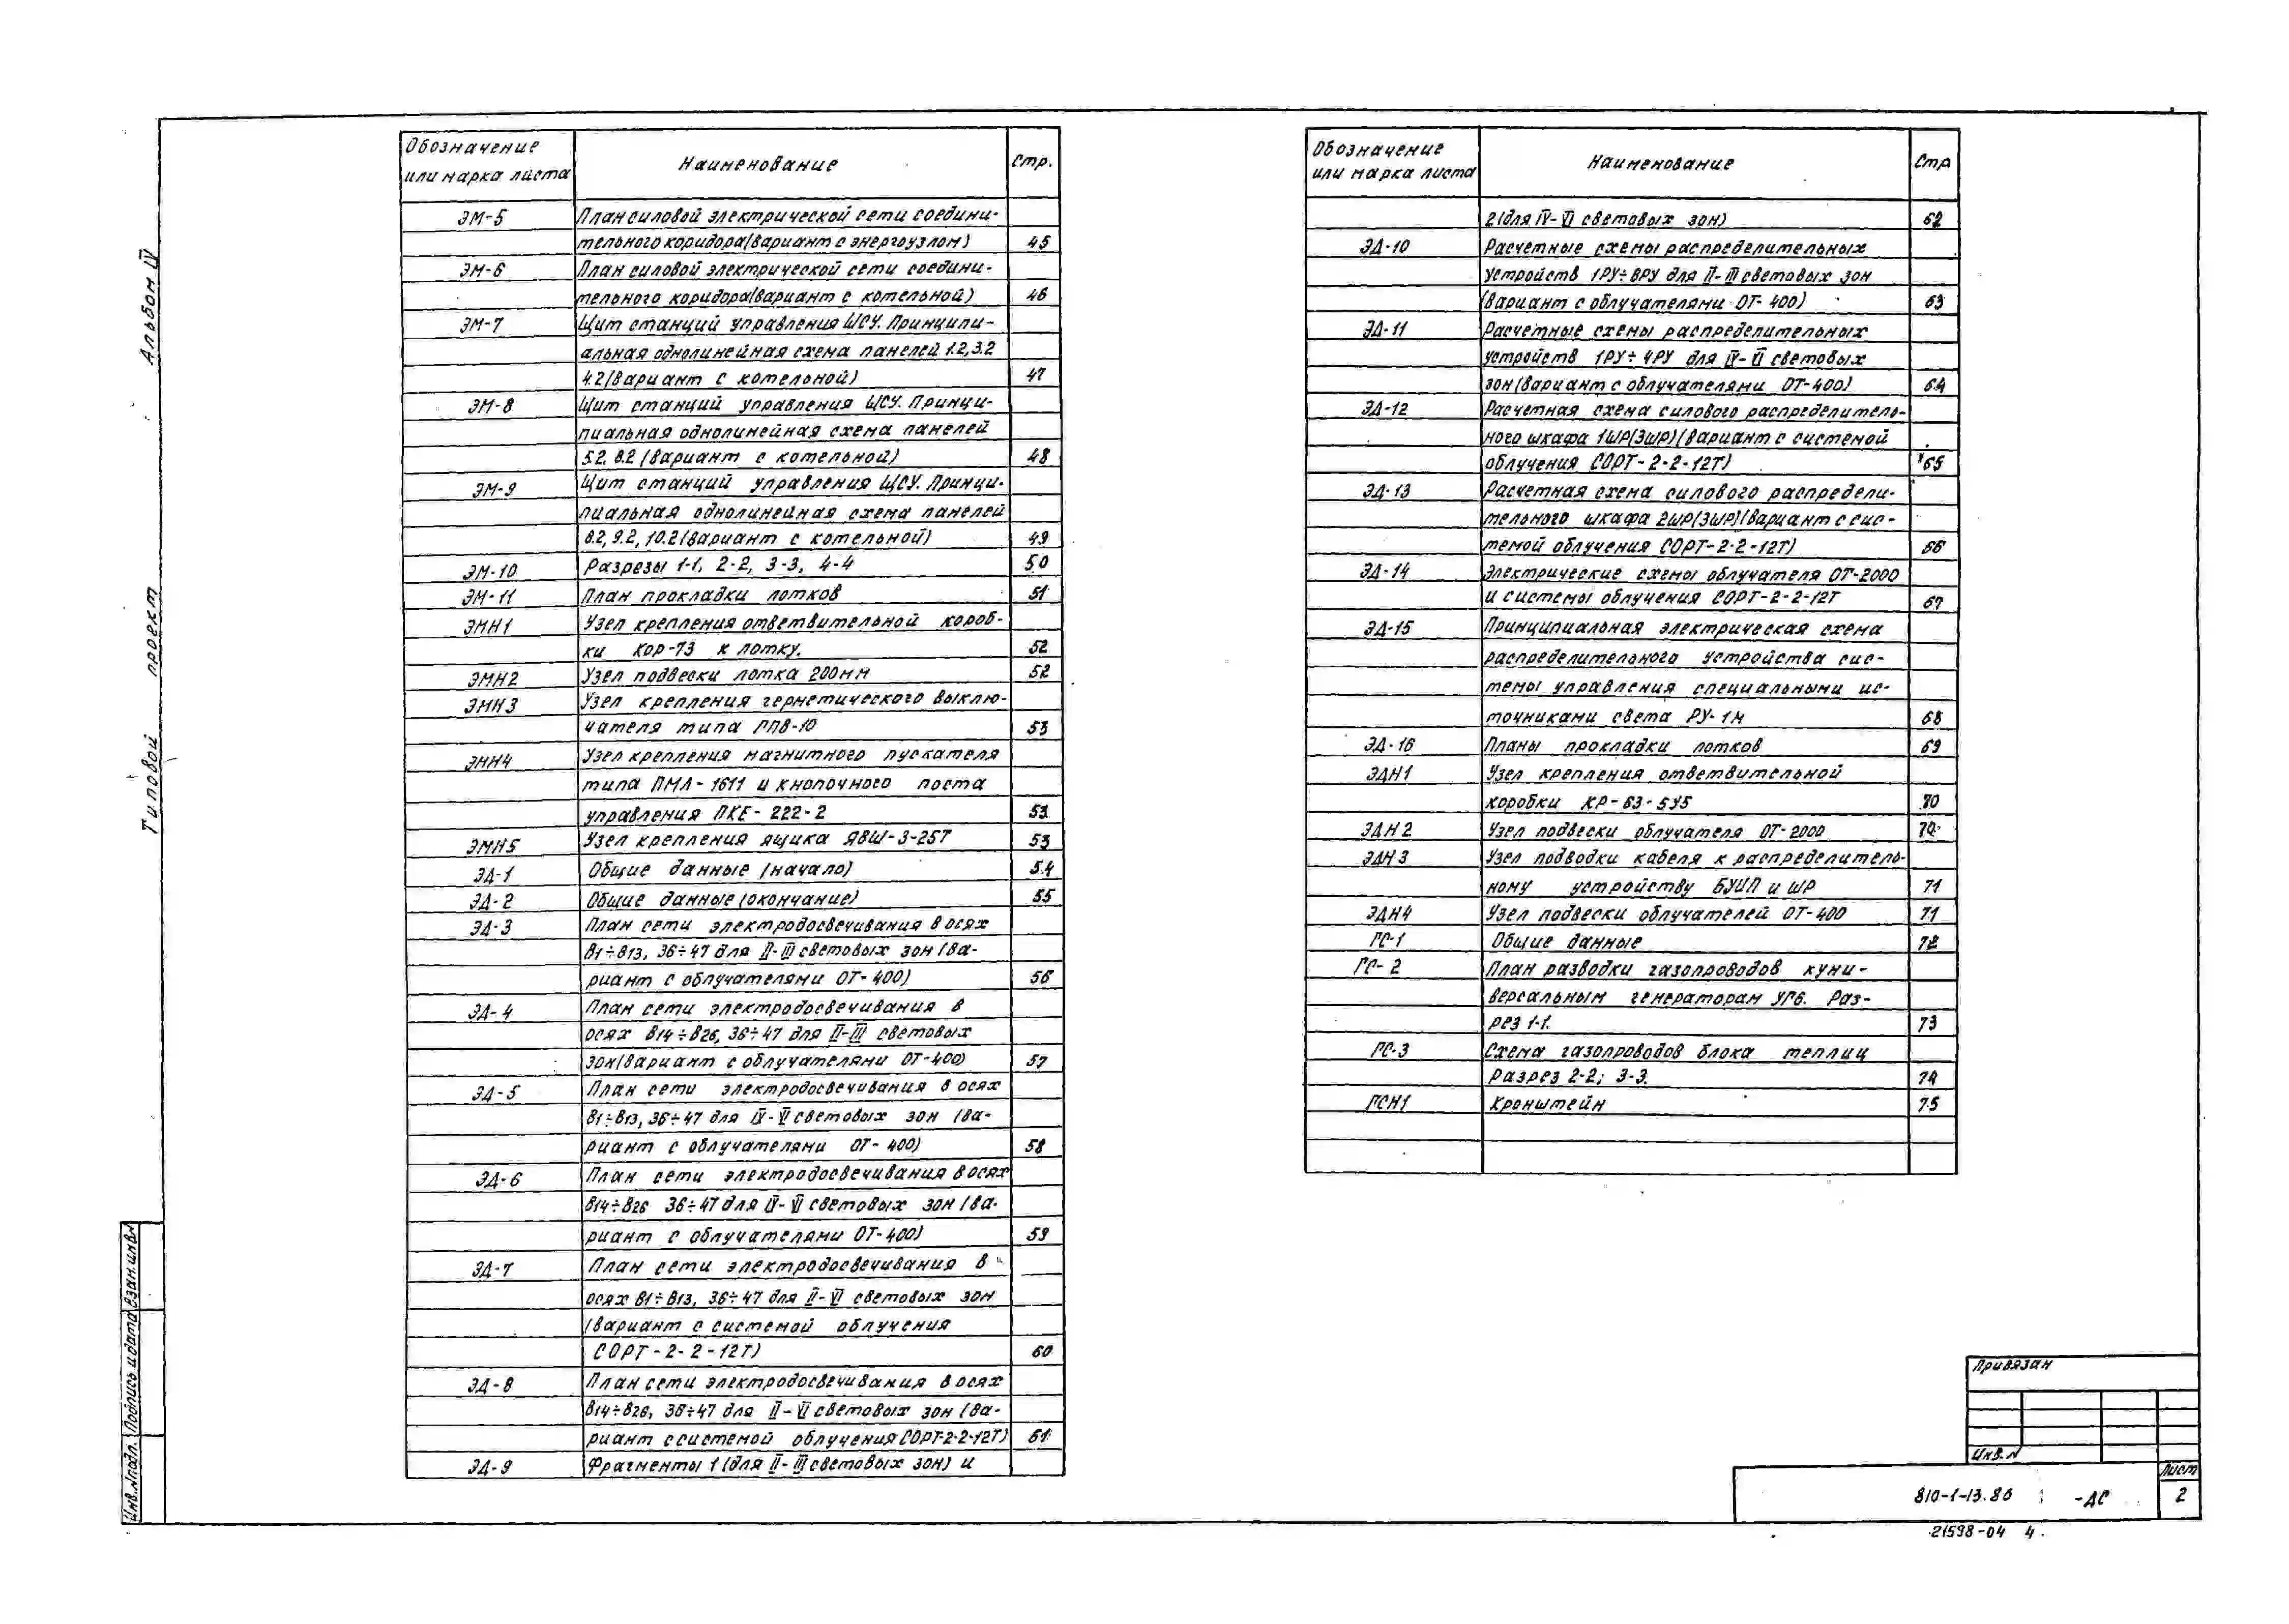 Альбом IV
Типовой проект
Обозначение или марка листа Наименование Стр.
ЭМ-5 План силовой электрической сети соедини-
тельного коридора (вариант с энергоузлом) 45
ЭМ-6 План силовой электрической сети соедини-
тельного коридора (вариант с котельной) 46
ЭМ-7 Щит станций управления ЩСУ. Принципи-
альная однолинейная схема панелей 1.2, 3.2
4.2 (вариант с котельной) 47
ЭМ-8 Щит станций управления ЩСУ. Принци-
пиальная однолинейная схема панелей
5.2, 6.2 (вариант с котельной) 48
ЭМ-9 Щит станций управления ЩСУ. Принци-
пиальная однолинейная схема панелей
8.2, 9.2, 10.2 (вариант с котельной) 49
ЭМ-10 Разрезы 1-1, 2-2, 3-3, 4-4 50
ЭМ-11 План прокладки лотков 51
ЭМН1 Узел крепления ответвительной короб-
ки КОР-73 к лотку. 52
ЭМН2 Узел подвески лотка 200мм 52
ЭМН3 Узел крепления герметического выклю-
чателя типа ГПВ-10 53
ЭМН4 Узел крепления магнитного пускателя
типа ПМЛ-1611 и кнопочного поста
управления ПКЕ-222-2 53
ЭМН5 Узел крепления ящика ЯВШ-3-25Т 53
ЭД-1 Общие данные (начало) 54
ЭД-2 Общие данные (окончание) 55
ЭД-3 План сети электродосвечивания в осях
В1÷В13, 36÷47 для II-III световых зон (ва-
риант с облучателями ОТ-400) 56
ЭД-4 План сети электродосвечивания в
осях В14÷В26, 36÷47 для II-III световых
зон (вариант с облучателями ОТ-400) 57
ЭД-5 План сети электродосвечивания в осях
В1÷В13, 36÷47 для IV-VI световых зон (ва-
риант с облучателями ОТ-400) 58
ЭД-6 План сети электродосвечивания в осях
В14÷В26 36÷47 для IV-VI световых зон (ва-
риант с облучателями ОТ-400) 59
ЭД-7 План сети электродосвечивания в
осях В1÷В13, 36÷47 для II-VI световых зон
(вариант с системой облучения
СОРТ-2-2-12Т) 60
ЭД-8 План сети электродосвечивания в осях
В14÷В26, 36÷47 для II-VI световых зон (ва-
риант с системой облучения СОРТ-2-2-12Т) 61
ЭД-9 Фрагменты 1 (для II-III световых зон) и
Обозначение или марка листа Наименование Стр
2 (для IV-VI световых зон) 62
ЭД-10 Расчетные схемы распределительных
устройств 1РУ÷8РУ для II-III световых зон
(вариант с облучателями ОТ-400) 63
ЭД-11 Расчетные схемы распределительных
устройств 1РУ÷4РУ для IV-VI световых
зон (вариант с облучателями ОТ-400) 64
ЭД-12 Расчетная схема силового распределитель-
ного шкафа 1ШР(3ШР) (вариант с системой
облучения СОРТ-2-2-12Т) 65
ЭД-13 Расчетная схема силового распредели-
тельного шкафа 2ШР(3ШР) (вариант с сис-
темой облучения СОРТ-2-2-12Т) 66
ЭД-14 Электрические схемы облучателя ОТ-2000
и системы облучения СОРТ-2-2-12Т 67
ЭД-15 Принципиальная электрическая схема
распределительного устройства сис-
темы управления специальными ис-
точниками света РУ-1М 68
ЭД-16 Планы прокладки лотков 69
ЭДН1 Узел крепления ответвительной
коробки КР-63-5У5 70
ЭДН2 Узел подвески облучателя ОТ-2000 70
ЭДН3 Узел подводки кабеля к распределитель-
ному устройству БУИП и ШР 71
ЭДН4 Узел подвески облучателей ОТ-400 71
ГС-1 Общие данные 72
ГС-2 План разводки газопроводов к уни-
версальным генераторам УГ6. Раз-
рез 1-1. 73
ГС-3 Схема газопроводов блока теплиц
Разрез 2-2; 3-3. 74
ГСН1 Кронштейн 75
Инв.№подл. Подпись и дата Взам.инв.№
Привязан
Инв.№
810-1-13.86 -ДС
Лист
2
21598-04 4